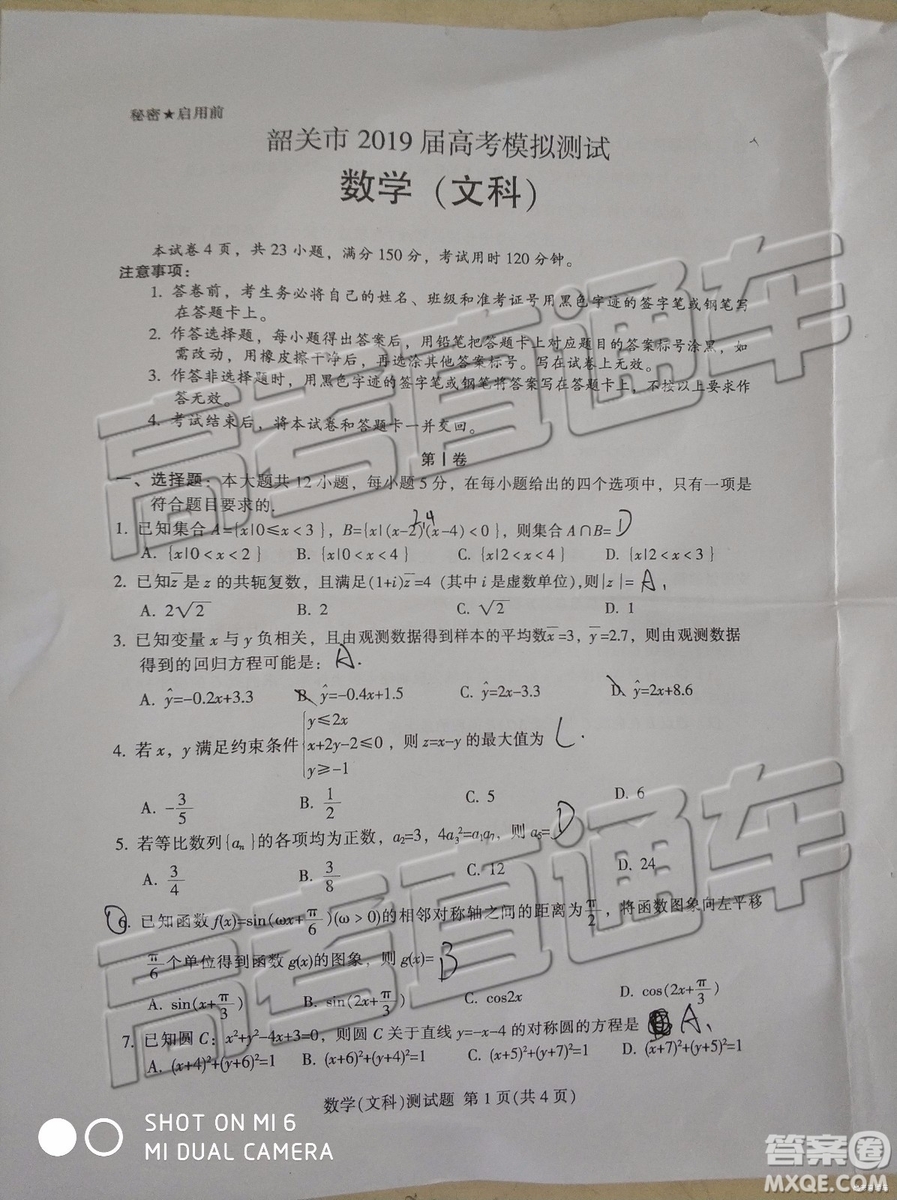 秘密★启用前
韶关市 2019 届高考模拟测试
数学（文科）
本试卷 4 页，共 23 小题，满分 150 分，考试用时 120 分钟。
注意事项：
1. 答卷前，考生务必将自己的姓名、班级和准考证号用黑色字迹的签字笔或钢笔写
在答题卡上。
2. 作答选择题，每小题得出答案后，用铅笔把答题卡上对应题目的答案标号涂黑，如
需改动，用橡皮擦干净后，再选涂其他答案标号。写在试卷上无效。
3. 作答非选择题时，用黑色字迹的签字笔或钢笔将答案写在答题卡上，不按以上要求作
答无效。
4. 考试结束后，将本试卷和答题卡一并交回。
第Ⅰ卷
一、选择题：本大题共 12 小题，每小题 5 分，在每小题给出的四个选项中，只有一项是
符合题目要求的.
2,4
1. 已知集合 A={x|0≤x<3}，B={x|(x-2)(x-4)<0}，则集合 A∩B= D
A. {x|0<x<2} B. {x|0<x<4} C. {x|2<x<4} D. {x|2<x<3}
2. 已知z̅是 z 的共轭复数，且满足(1+i)z̅=4 (其中 i 是虚数单位),则|z|= A.
A. 2√2 B. 2 C. √2 D. 1
3. 已知变量 x 与 y 负相关，且由观测数据得到样本的平均数x̅=3，y̅=2.7，则由观测数据
得到的回归方程可能是： A.
A. ŷ=-0.2x+3.3 B. ŷ=-0.4x+1.5 C. ŷ=2x-3.3 D. ŷ=2x+8.6
4. 若 x，y 满足约束条件 {y≤2x x+2y-2≤0 y≥-1，则 z=x-y 的最大值为 C.
A. -3/5 B. 1/2 C. 5 D. 6
5. 若等比数列{aₙ}的各项均为正数，a₂=3，4a₃²=a₁a₇，则 a₅= D
A. 3/4 B. 3/8 C. 12 D. 24
6. 已知函数 f(x)=sin(ωx+π/6)(ω>0)的相邻对称轴之间的距离为π/2，将函数图象向左平移
π/6个单位得到函数 g(x)的图象，则 g(x)= B
A. sin(x+π/3) B. sin(2x+π/3) C. cos2x D. cos(2x+π/3)
7. 已知圆 C：x²+y²-4x+3=0，则圆 C 关于直线 y=-x-4 的对称圆的方程是 A.
A. (x+4)²+(y+6)²=1 B. (x+6)²+(y+4)²=1 C. (x+5)²+(y+7)²=1 D. (x+7)²+(y+5)²=1
数学(文科)测试题 第 1 页(共 4 页)
高考直通车
高考直通车
SHOT ON MI 6
MI DUAL CAMERA
答案圈
MXQE.COM